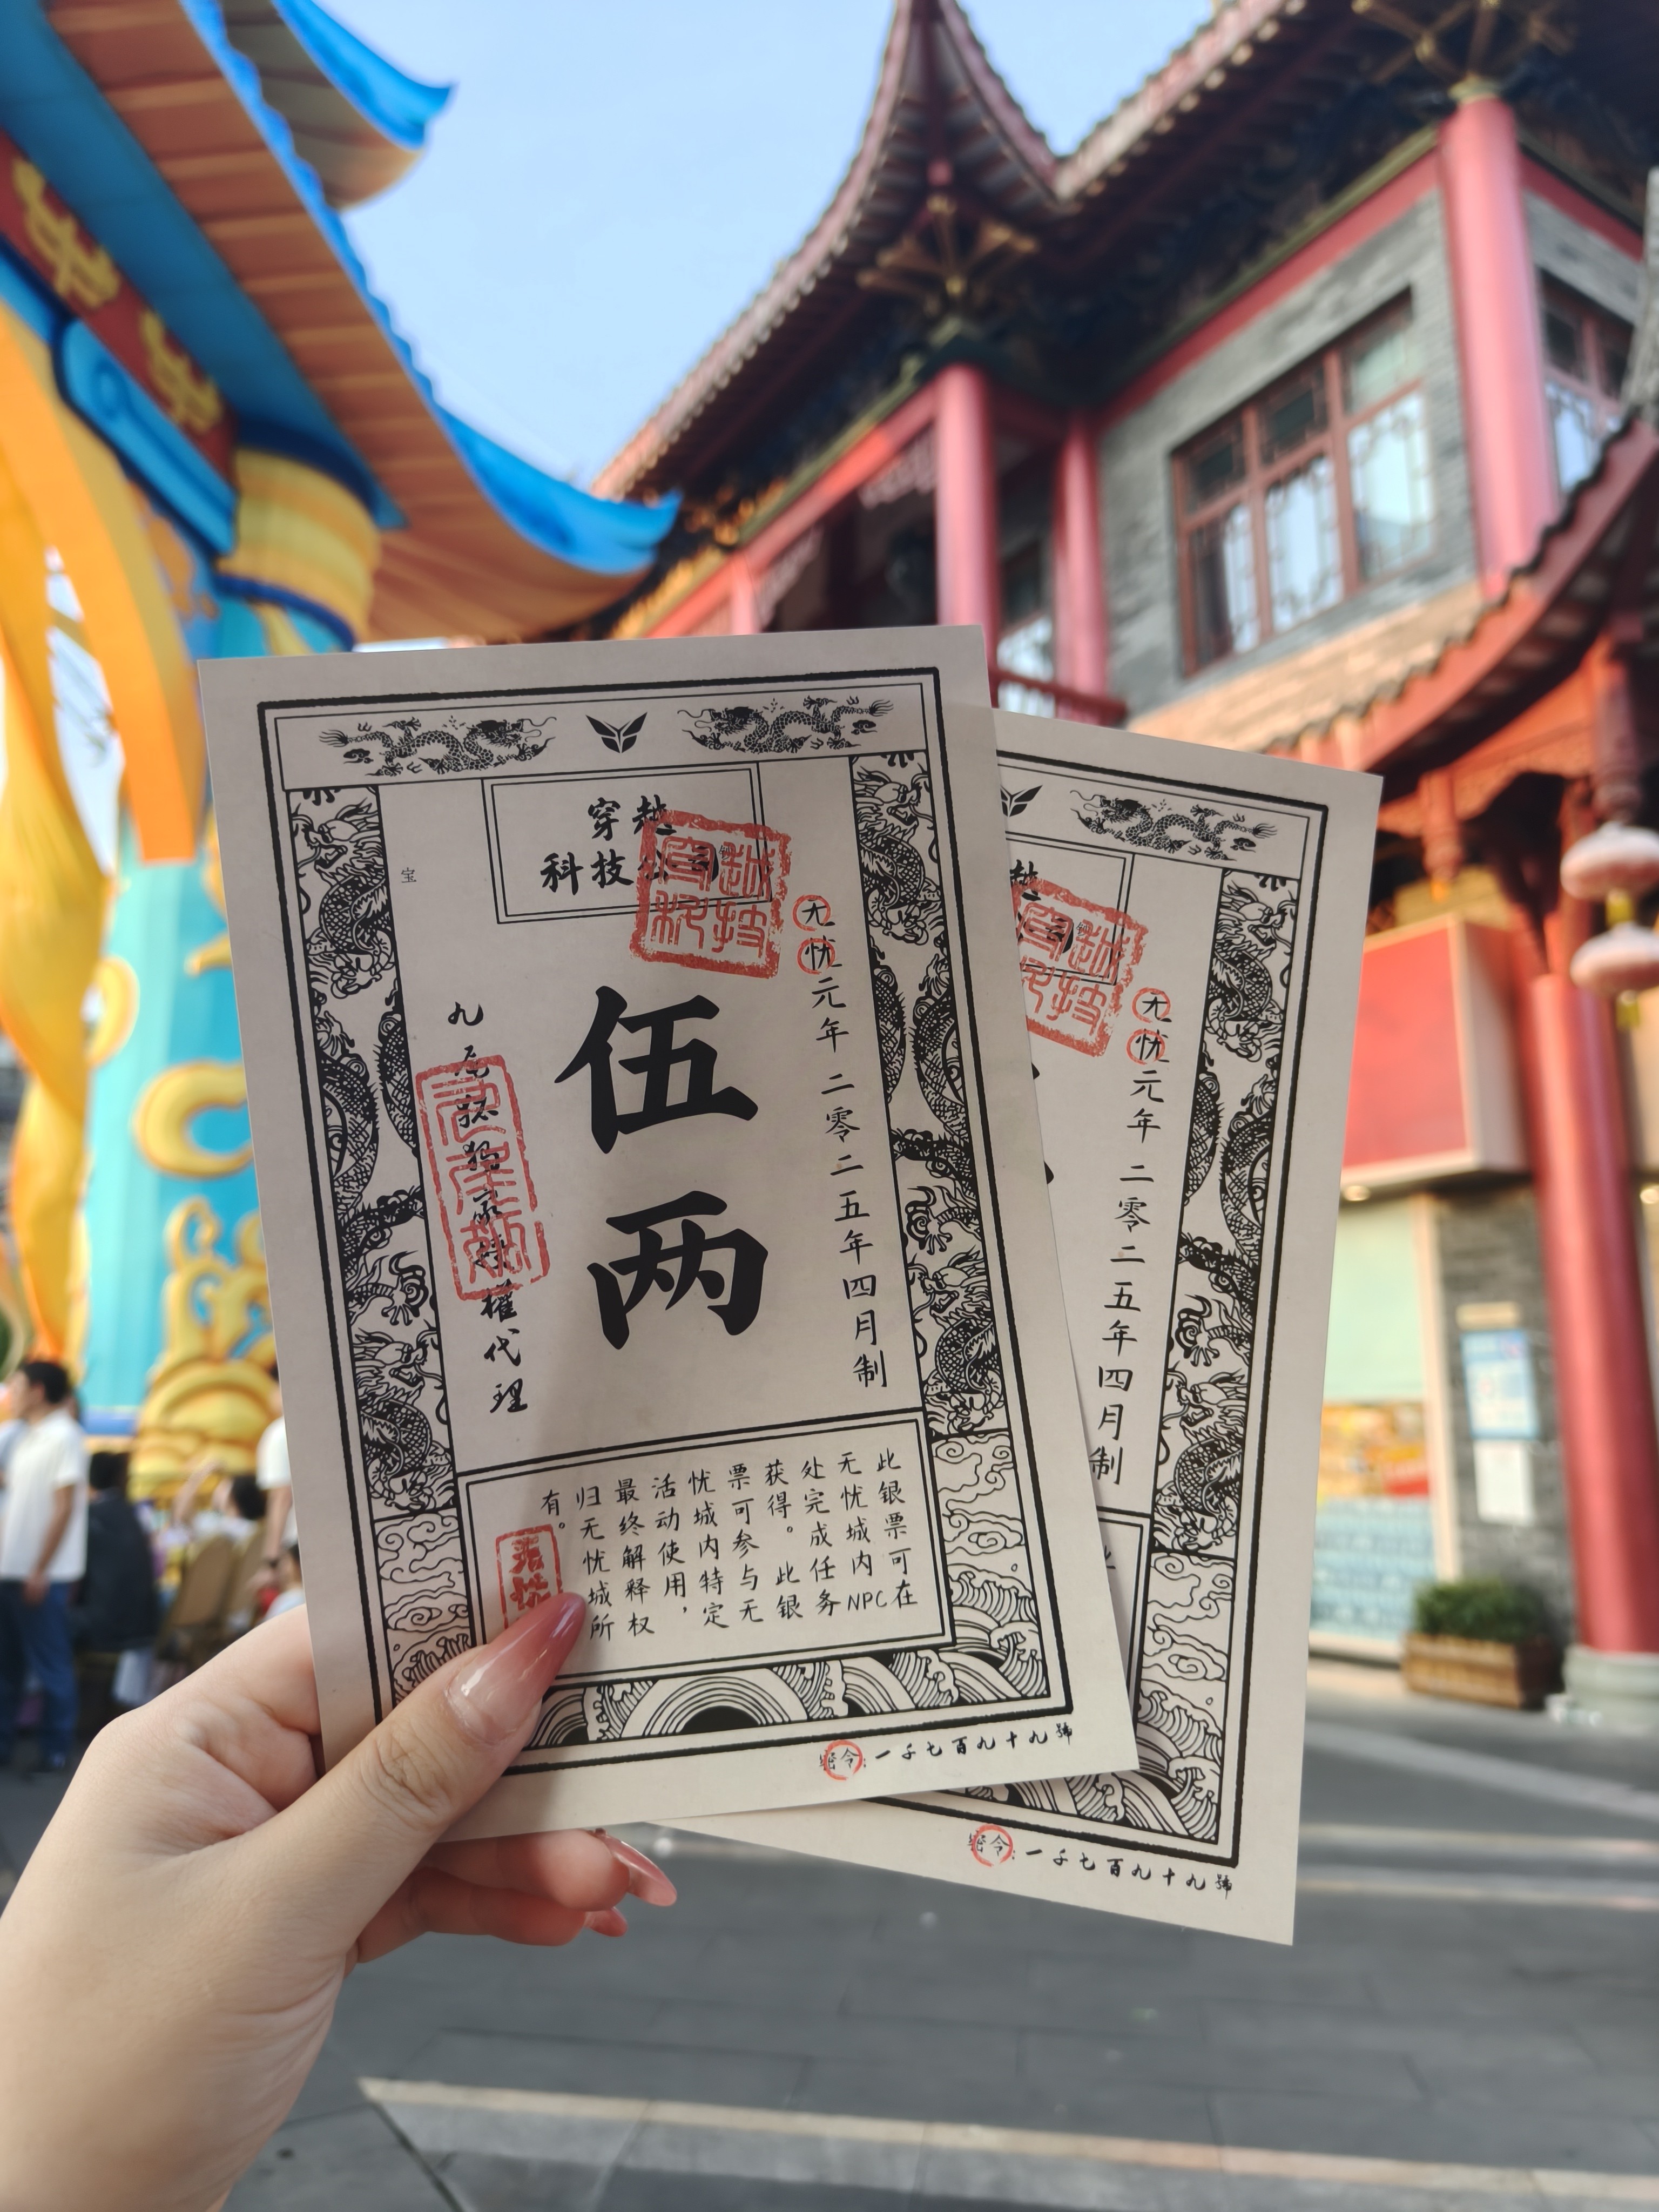 穿越
科技公司
宝
无忧元年二零二五年四月制
伍两
權代理
此银票可在
无忧城内NPC
处完成任务
获得。此银
票可参与无
忧城内特定
活动使用，
最终解释权
归无忧城所
有。
密令:一千七百九十九號
越
无忧元年二零二五年四月制
密令:一千七百九十九號
穿越科技